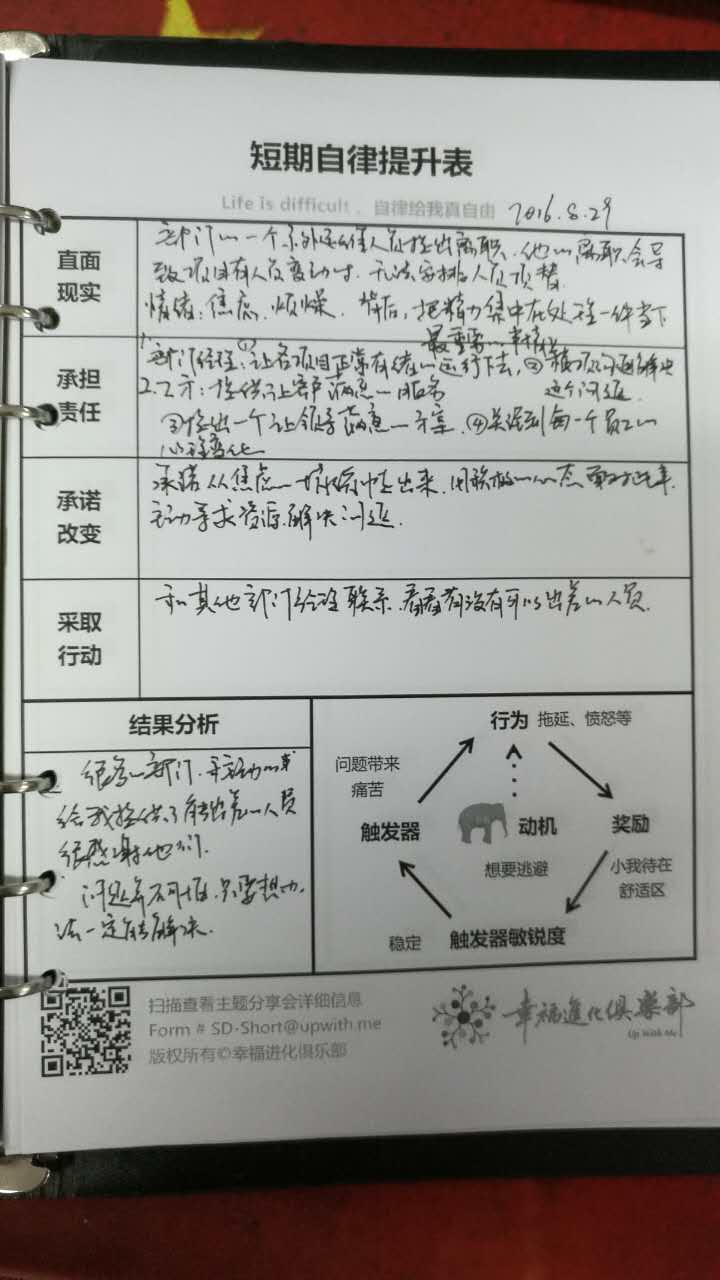 短期自律提升表
Life is difficult，自律给我真自由 2016.8.29
直面
现实
部门的一个系外包人员提出离职，他的离职会导
致项目有人员变动时，无法安排人员顶替。
情绪：焦虑，烦燥。背后，把精力集中在处理一件当下
最重要的事情
承担
责任
1. 部门经理：①让各项目正常有绪的运行下去，②积极沟通解决
2. 乙方：提供让客户满意的服务 这个问题.
③提出一个让领导满意的方案. ④关注到每一个员工的
心理变化
承诺
改变
承诺从焦虑的情绪中走出来，用积极的心态面对此事.
主动寻求资源.解决问题.
采取
行动
和其他部门经理联系，看看有没有可以出差的人员.
结果分析
很多的部门.
给我提供了能出差的人员
很感谢他们.
问题并不可怕，只要想办
法一定能解决.
行为 拖延、愤怒等
问题带来
痛苦
触发器
动机
奖励
想要逃避
小我待在
舒适区
稳定
触发器敏锐度
扫描查看主题分享会详细信息
Form # SD-Short@upwith.me
版权所有©幸福进化俱乐部
幸福進化俱樂部
Up With Me